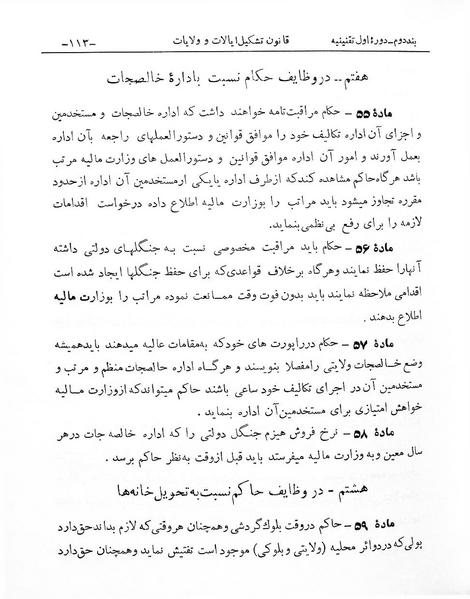 بند دوم ــ دورهٔ اول تقنینیه قانون تشکیل ایالات و ولایات ـ۱۱۳ـ
هفتم ــ در وظایف حکام نسبت باداره خالصجات
مادهٔ ۵۵ ـ حکام مراقبت تامه خواهند داشت که اداره خالصجات و مستخدمین
و اجزای آن اداره تکالیف خود را موافق قوانین و دستورالعملهای راجعه بآن اداره
بعمل آورند و امور آن اداره موافق قوانین و دستورالعمل های وزارت مالیه مرتب
باشد هرگاه حاکم مشاهده کند که از طرف اداره یا یکی از مستخدمین آن اداره از حدود
مقرره تجاوز میشود باید مراتب را بوزارت مالیه اطلاع داده درخواست اقدامات
لازمه را برای رفع بی‌نظمی بنماید.
مادهٔ ۵۶ ـ حکام باید مراقبت مخصوصی نسبت به جنگلهای دولتی داشته
آنها را حفظ نمایند و هرگاه برخلاف قواعدی که برای حفظ جنگلها ایجاد شده است
اقدامی ملاحظه نمایند باید بدون فوت وقت ممانعت نموده مراتب را بوزارت مالیه
اطلاع بدهند .
مادهٔ ۵۷ ـ حکام در راپورت های خود که به مقامات عالیه میدهند باید همیشه
وضع خالصجات ولایتی را مفصلا بنویسند و هرگاه اداره خالصجات منظم و مرتب و
مستخدمین آن در اجرای تکالیف خود ساعی باشند حاکم میتواند که از وزارت مالیه
خواهش امتیازی برای مستخدمین آن اداره بنماید .
مادهٔ ۵۸ ـ نرخ فروش هیزم جنگل دولتی را که اداره خالصه جات در هر
سال معین و به وزارت مالیه میفرستد باید قبل از وقت به نظر حاکم برسد .
هشتم ـ در وظایف حاکم نسبت به تحویل خانه‌ها
مادهٔ ۵۹ ـ حاکم در وقت بلوک گردشی و همچنان هر وقتی که لازم بداند حق دارد
پولی که در دوائر محلیه (ولایتی و بلوکی) موجود است تفتیش نماید و همچنان حق دارد